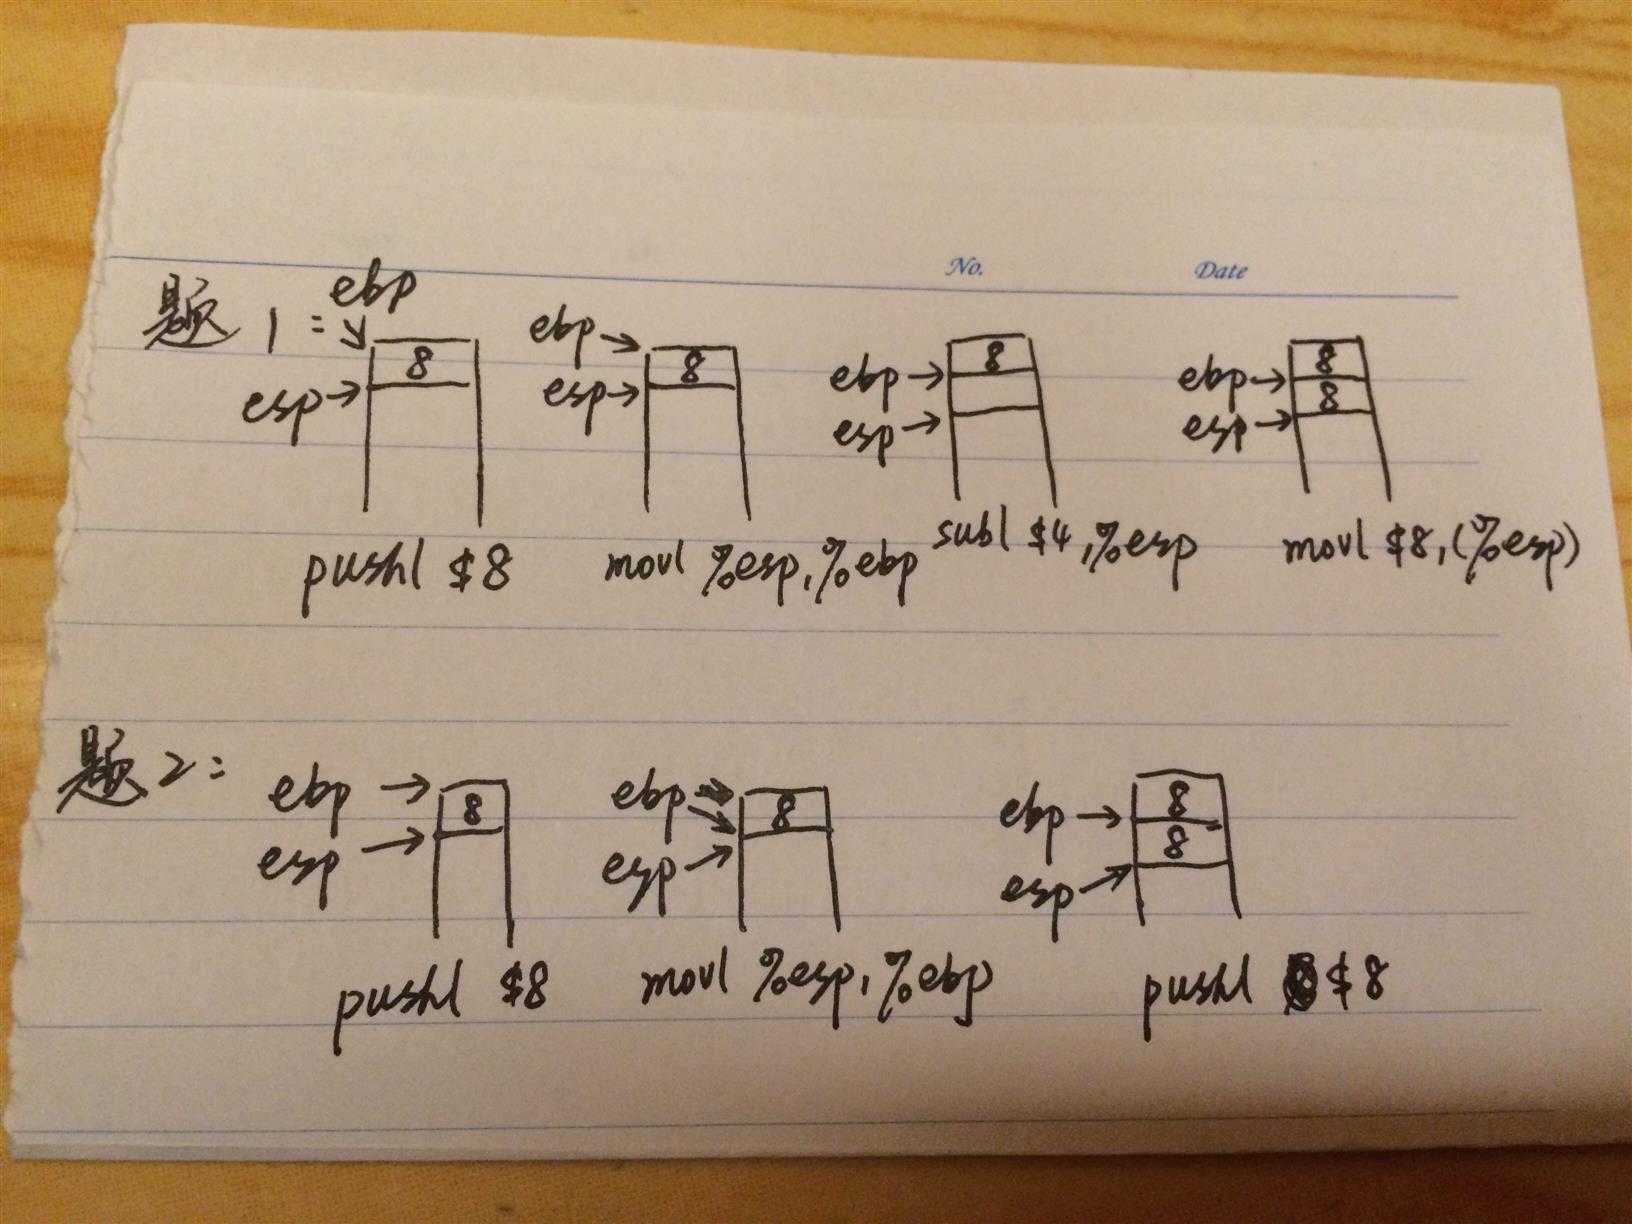 No. Date
题1: ebp
8
esp
ebp 8
esp
8
ebp
esp
8
ebp 8
esp
pushl $8 movl %esp,%ebp subl $4,%esp movl $8,(%esp)
题2:
ebp 8
esp
ebp 8
esp
8
ebp 8
esp
pushl $8 movl %esp,%ebp pushl $8